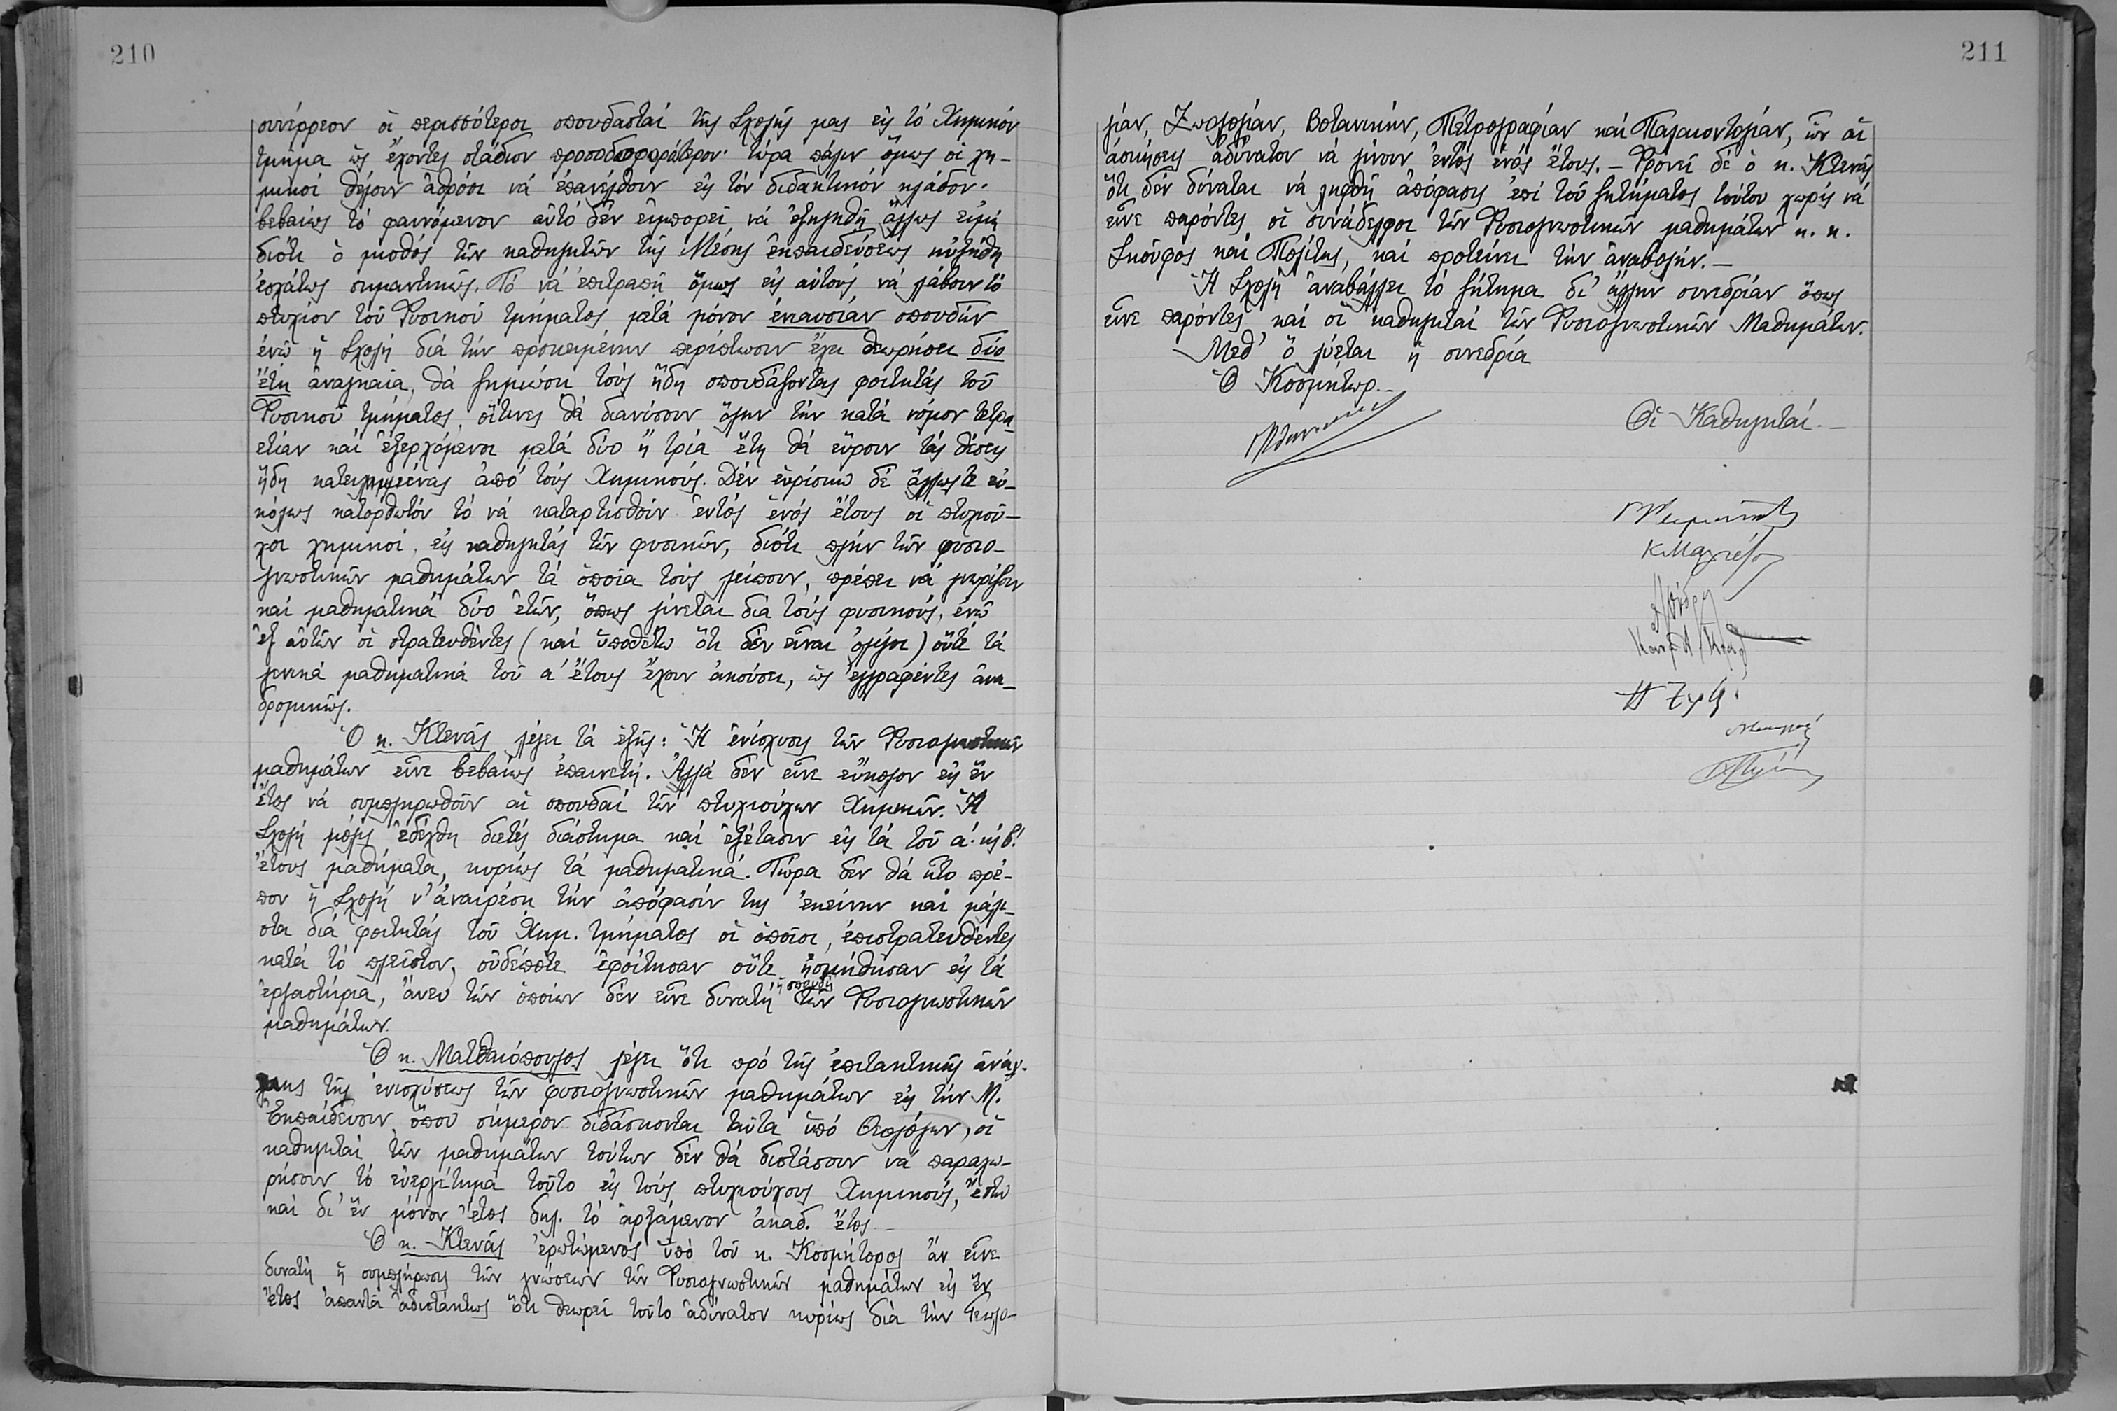 210
συνέρρεον οἱ περισσότεροι σπουδασταί τῆς Σχολῆς μας εἰς τό Χημικόν
τμῆμα ὡς ἔχοντες στάδιον προσοδοφορώτερον· τώρα πάλιν ὅμως οἱ χη-
μικοί θέλουν ἀθρόοι νά ἐπανέλθουν εἰς τόν διδακτικόν κλάδον·
βεβαίως τό φαινόμενον αὐτό δέν εἰμπορεῖ νά ἐξηγηθῇ ἄλλως εἰμή
διότι ὁ μισθός τῶν καθηγητῶν τῆς Μέσης ἐκπαιδεύσεως ηὐξήθη
ἐσχάτως σημαντικῶς. Τό νά ἐπιτραπῇ ὅμως εἰς αὐτούς νά λάβουν τό
πτυχίον τοῦ Φυσικοῦ τμήματος μετά μόνον ἐνιαυσίαν σπουδήν
ἐνῷ ἡ Σχολή διά τήν προκειμένην περίπτωσιν ἔχει θεωρήσει δύο
ἔτη ἀναγκαῖα, θά ζημιώσῃ τούς ἤδη σπουδάζοντας φοιτητάς τοῦ
Φυσικοῦ τμήματος, οἵτινες θά διανύσουν ὅλην τήν κατά νόμον τετρα-
ετίαν καί ἐξερχόμενοι μετά δύο ἤ τρία ἔτη θά εὕρουν τάς θέσεις
ἤδη κατειλημμένας ἀπό τούς Χημικούς. Δέν εὑρίσκω δέ ἄλλως τε εὐ-
κόλως κατορθωτόν τό νά καταρτισθοῦν ἐντός ἑνός ἔτους οἱ πτυχιοῦ-
χοι χημικοί, εἰς καθηγητάς τῶν φυσικῶν, διότι πλήν τῶν φυσιο-
γνωστικῶν μαθημάτων τά ὁποῖα τούς λείπουν, πρέπει νά γνωρίζουν
καί μαθηματικά δύο ἐτῶν, ὅπως γίνεται διά τούς φυσικούς, ἐνῷ
ἐξ αὐτῶν οἱ στρατευθέντες (καί ὑποθέτω ὅτι δέν εἶναι ὀλίγοι) οὔτε τά
γενικά μαθηματικά τοῦ α' ἔτους ἔχουν ἀκούσει, ὡς ἐγγραφέντες ἀνα-
δρομικῶς.
Ὁ κ. Κτενᾶς λέγει τά ἑξῆς: Ἡ ἐνίσχυσις τῶν Φυσιογνωστικῶν
μαθημάτων εἶνε βεβαίως ἐπαινετή. Ἀλλά δέν εἶνε εὔκολον εἰς ἕν
ἔτος νά συμπληρωθοῦν αἱ σπουδαί τῶν πτυχιούχων Χημικῶν. Ἡ
Σχολή μόλις ἐδέχθη διετές διάστημα καί ἐξέτασιν εἰς τά τοῦ α' κ β'
ἔτους μαθήματα, κυρίως τά μαθηματικά. Τώρα δέν θά ἦτο πρέ-
πον ἡ Σχολή ν' ἀναιρέσῃ τήν ἀπόφασίν της ἐκείνην καί μάλι-
στα διά φοιτητάς τοῦ Χημ. τμήματος οἱ ὁποῖοι, ἐπιστρατευθέντες
κατά τό πλεῖστον, οὐδέποτε ἐφοίτησαν οὔτε ἠσκήθησαν εἰς τά
ἐργαστήρια, ἄνευ τῶν ὁποίων δέν εἶνε δυνατή ἡ σπουδή τῶν Φυσιογνωστικῶν
μαθημάτων.
Ὁ κ. Ματθαιόπουλος λέγει ὅτι πρό τῆς ἐπιτακτικῆς ἀνάγ-
κης τῆς ἐνισχύσεως τῶν φυσιογνωστικῶν μαθημάτων εἰς τήν Μ.
Ἐκπαίδευσιν, ὅπου σήμερον διδάσκονται ταῦτα ὑπό Θεολόγων, οἱ
καθηγηταί τῶν μαθημάτων τούτων δέν θά διστάσουν νά παραχω-
ρήσουν τό εὐεργέτημα τοῦτο εἰς τούς πτυχιούχους Χημικούς, ἔστω
καί δι' ἕν μόνον ἔτος δηλ. τό ἀρξάμενον ἀκαδ. ἔτος.
Ὁ κ. Κτενᾶς ἐρωτώμενος ὑπό τοῦ κ. Κοσμήτορος ἄν εἶνε
δυνατή ἡ συμπλήρωσις τῶν γνώσεων τῶν Φυσιογνωστικῶν μαθημάτων εἰς ἕν
ἔτος ἀπαντᾷ ἀδιστάκτως ὅτι θεωρεῖ τοῦτο ἀδύνατον κυρίως διά τήν Γεωλο-
211
γίαν, Ζωολογίαν, Βοτανικήν, Πετρογραφίαν καί Παλαιοντολογίαν, ὧν αἱ
ἀσκήσεις ἀδύνατον νά γίνουν ἐντός ἑνός ἔτους. – Φρονεῖ δέ ὁ κ. Κτενᾶς
ὅτι δέν δύναται νά ληφθῇ ἀπόφασις ἐπί τοῦ ζητήματος τούτου χωρίς νά
εἶνε παρόντες οἱ συνάδελφοι τῶν Φυσιογνωστικῶν μαθημάτων κ. κ.
Σκοῦφος καί Πολίτης, καί προτείνει τήν ἀναβολήν. –
Ἡ Σχολή ἀναβάλλει τό ζήτημα δι' ἄλλην συνεδρίαν ὅπως
εἶνε παρόντες καί οἱ καθηγηταί τῶν Φυσιογνωστικῶν Μαθημάτων.
Μεθ' ὅ λύεται ἡ συνεδρία
Ὁ Κοσμήτωρ.
Οἱ Καθηγηταί. –
Κ Μαλτέζος